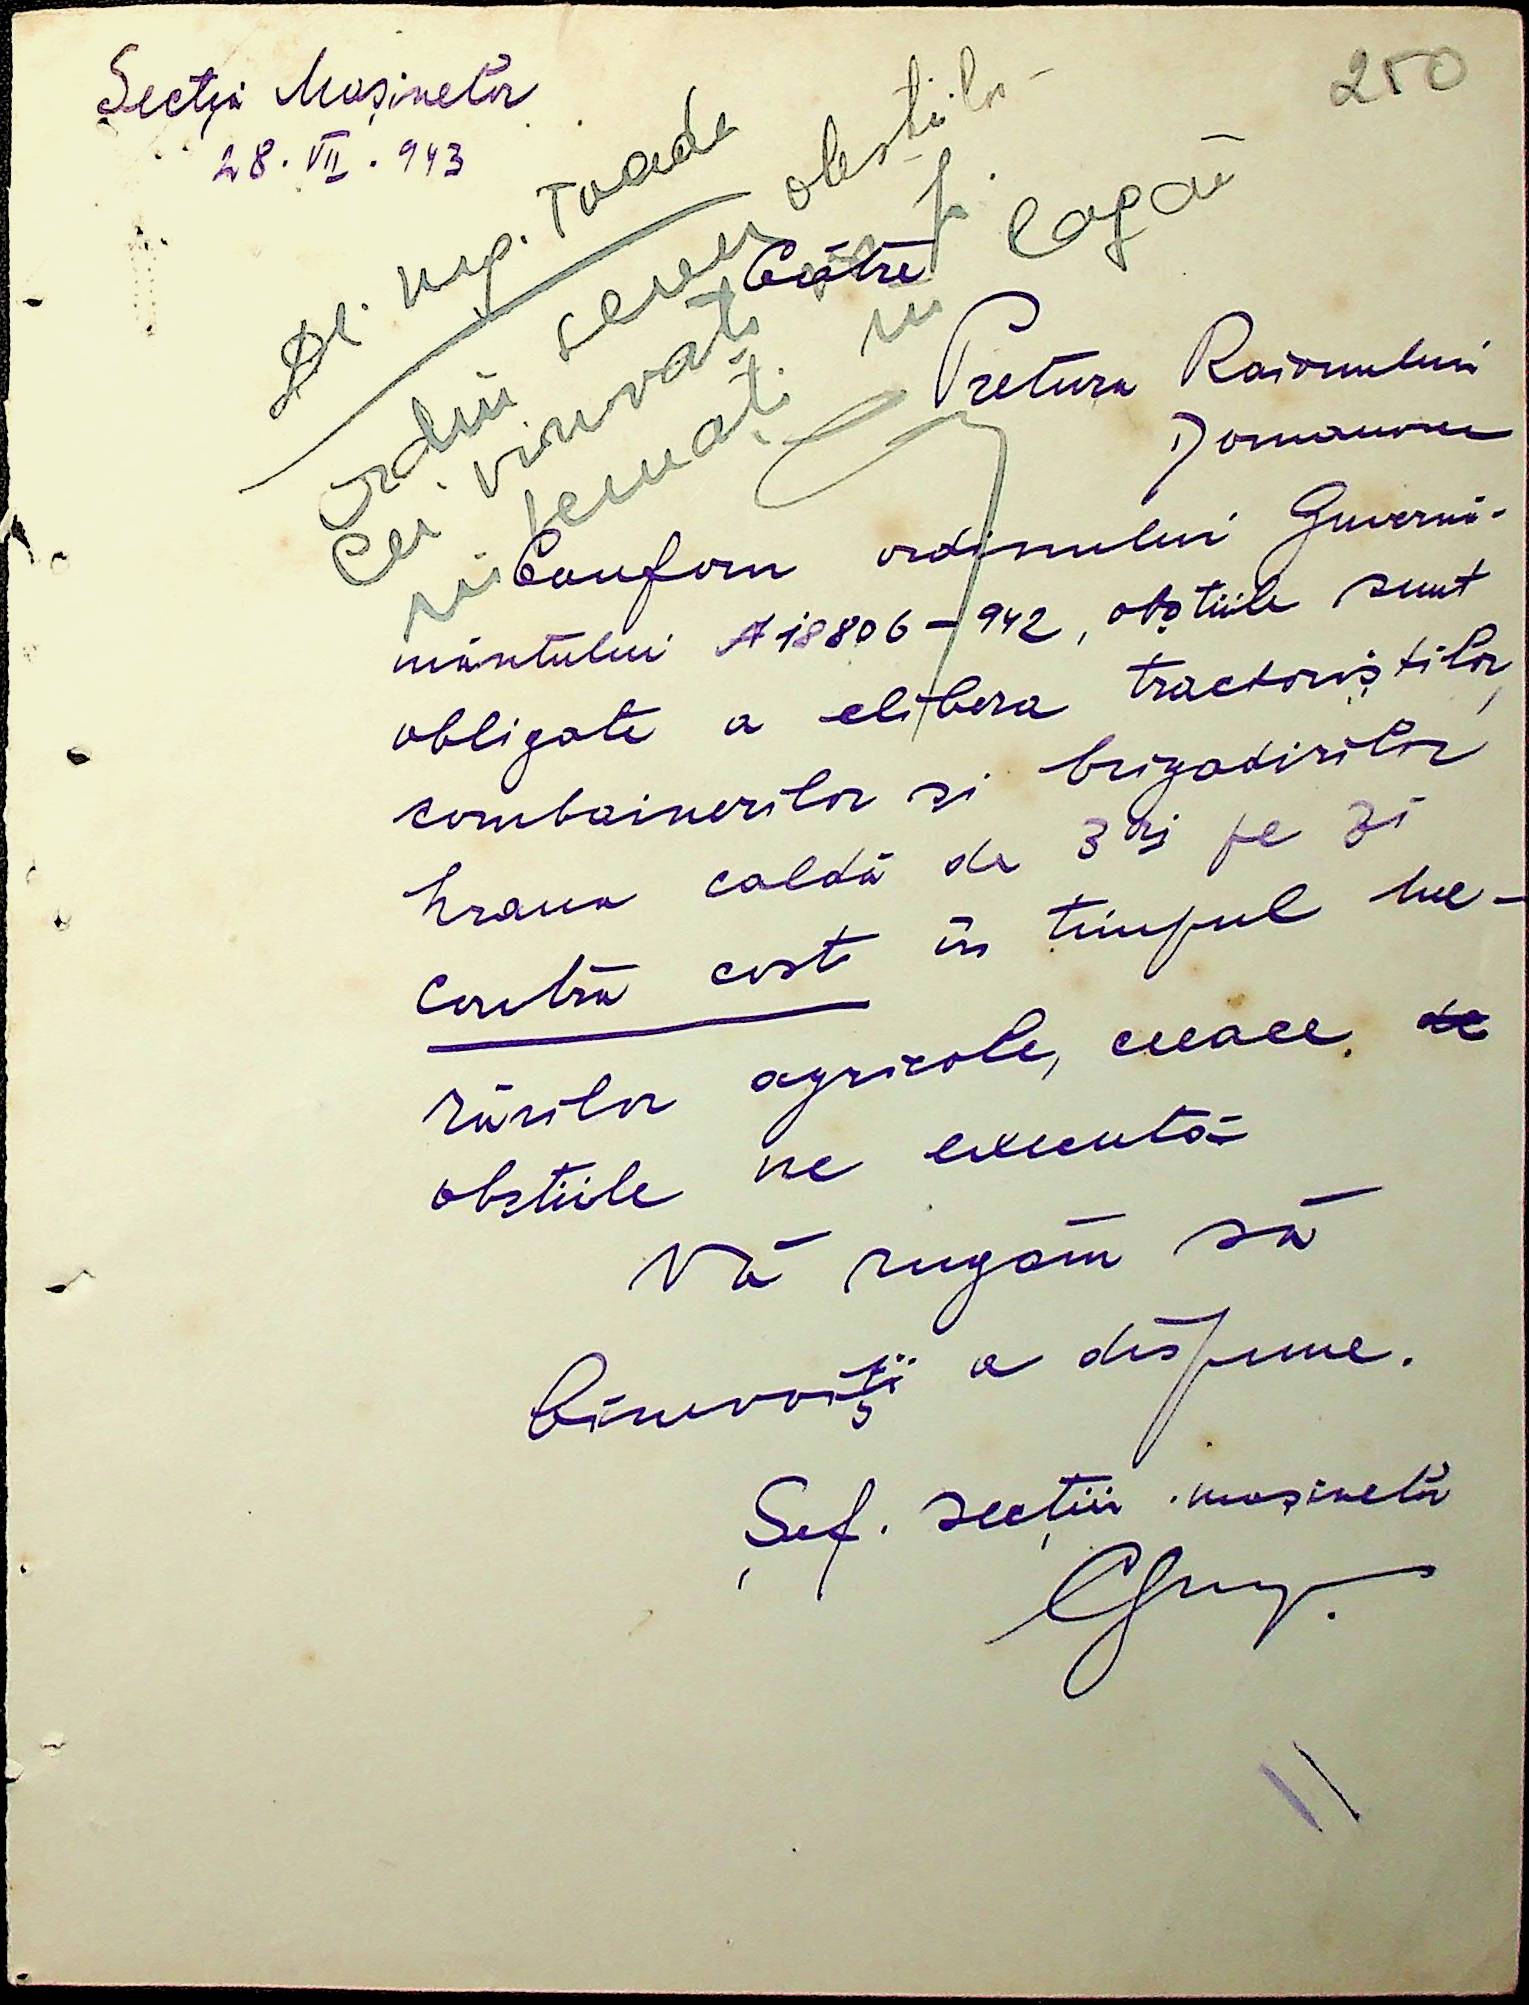 250
Secția Mașinelor
28. VII. 943
Dl. Ing. Toada
ordin sever obștiilor
Cei vinovați vor fi
internați în lagăr
Către
Pretura Raionului
Domanovca
Conform ordinului Guvernă-
mântului A 18806-942, obștiile sunt
obligate a elibera tractoriștilor,
combainerilor și brigadirilor
hrana caldă de 3 ori pe zi
contra cost în timpul luc-
rărilor agricole, ceeace de
obștiile ne execută
Vă rugăm să
binevoiți a dispune.
Șef. secției mașinelor